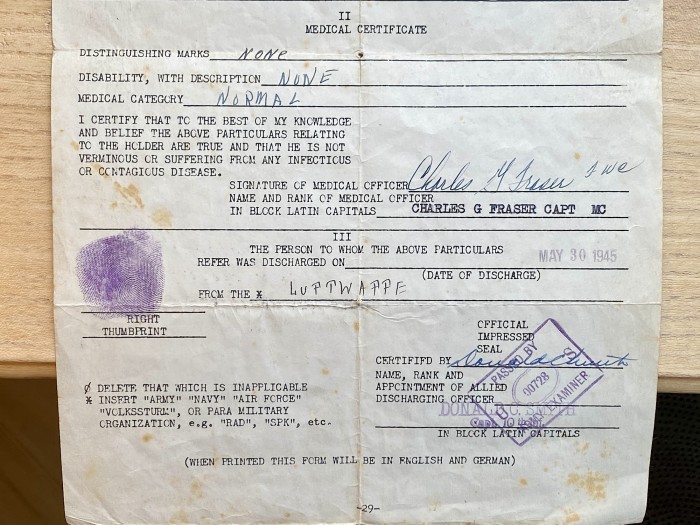 II
MEDICAL CERTIFICATE
DISTINGUISHING MARKS NONE
DISABILITY, WITH DESCRIPTION NONE
MEDICAL CATEGORY NORMAL
I CERTIFY THAT TO THE BEST OF MY KNOWLEDGE
AND BELIEF THE ABOVE PARTICULARS RELATING
TO THE HOLDER ARE TRUE AND THAT HE IS NOT
VERMINOUS OR SUFFERING FROM ANY INFECTIOUS
OR CONTAGIOUS DISEASE.
SIGNATURE OF MEDICAL OFFICER Charles G Fraser
NAME AND RANK OF MEDICAL OFFICER
IN BLOCK LATIN CAPITALS CHARLES G FRASER CAPT MC
III
THE PERSON TO WHOM THE ABOVE PARTICULARS
REFER WAS DISCHARGED ON MAY 30 1945
(DATE OF DISCHARGE)
FROM THE * LUFTWAFFE
RIGHT
THUMBPRINT
OFFICIAL
IMPRESSED
SEAL
CERTIFIFD BY
NAME, RANK AND
APPCINTMENT OF ALLIED
DISCHARGING OFFICER
DONALD C. SMITH
IN BLOCK LATIN CAPITALS
PASSED BY
00728
EXAMINER
Ø DELETE THAT WHICH IS INAPPLICABLE
* INSERT "ARMY" "NAVY" "AIR FORCE"
"VOLKSSTURM", OR PARA MILITARY
ORGANIZATION, e.g. "RAD", "SPK", etc.
(WHEN PRINTED THIS FORM WILL BE IN ENGLISH AND GERMAN)
-29-